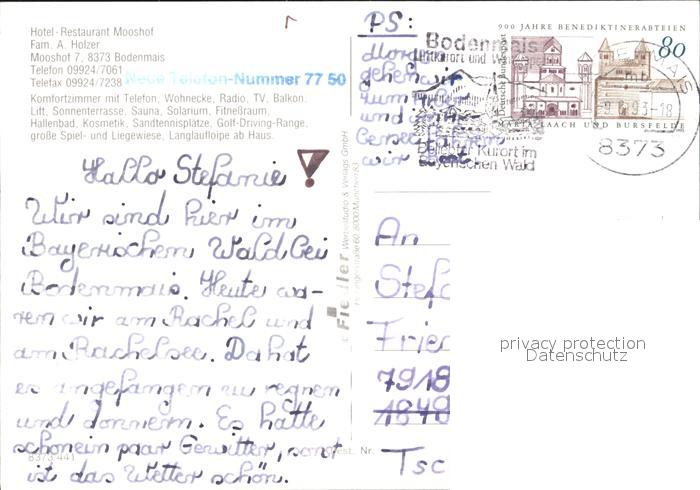 Hotel-Restaurant Mooshof
Fam. A. Holzer
Mooshof 7, 8373 Bodenmais
Telefon 09924/7061
Telefax 09924/7238
Neue Telefon-Nummer 77 50
Komfortzimmer mit Telefon, Wohnecke, Radio, TV, Balkon.
Lift, Sonnenterrasse, Sauna, Solarium, Fitneßraum,
Hallenbad, Kosmetik, Sandtennisplätze, Golf-Driving-Range,
große Spiel- und Liegewiese, Langlaufloipe ab Haus.
Hallo Stefanie!
Wir sind hier im
Bayerischem Wald bei
Bodenmais. Heute wa-
ren wir am Rachel und
am Rachelsee. Da hat
es angefangen zu regnen
und donnern. Es hatte
schon ein paar Gewitter, sonst
ist das Wetter schön.
8373/441
Fiedler
Werbestudio & Verlags GmbH
PS:
Morgen
gehen wir
zum
und
wir
Bodenmais
Luftkurort und
Beliebter Kurort im
Bayerischen Wald
900 JAHRE BENEDIKTINERABTEIEN
80
Deutsche Bundespost
MARIA LAACH UND BURSFELDE
93-18
8373
An
Stef
Fried
7918
1848
Tsc
privacy protection
Datenschutz
Best. Nr.